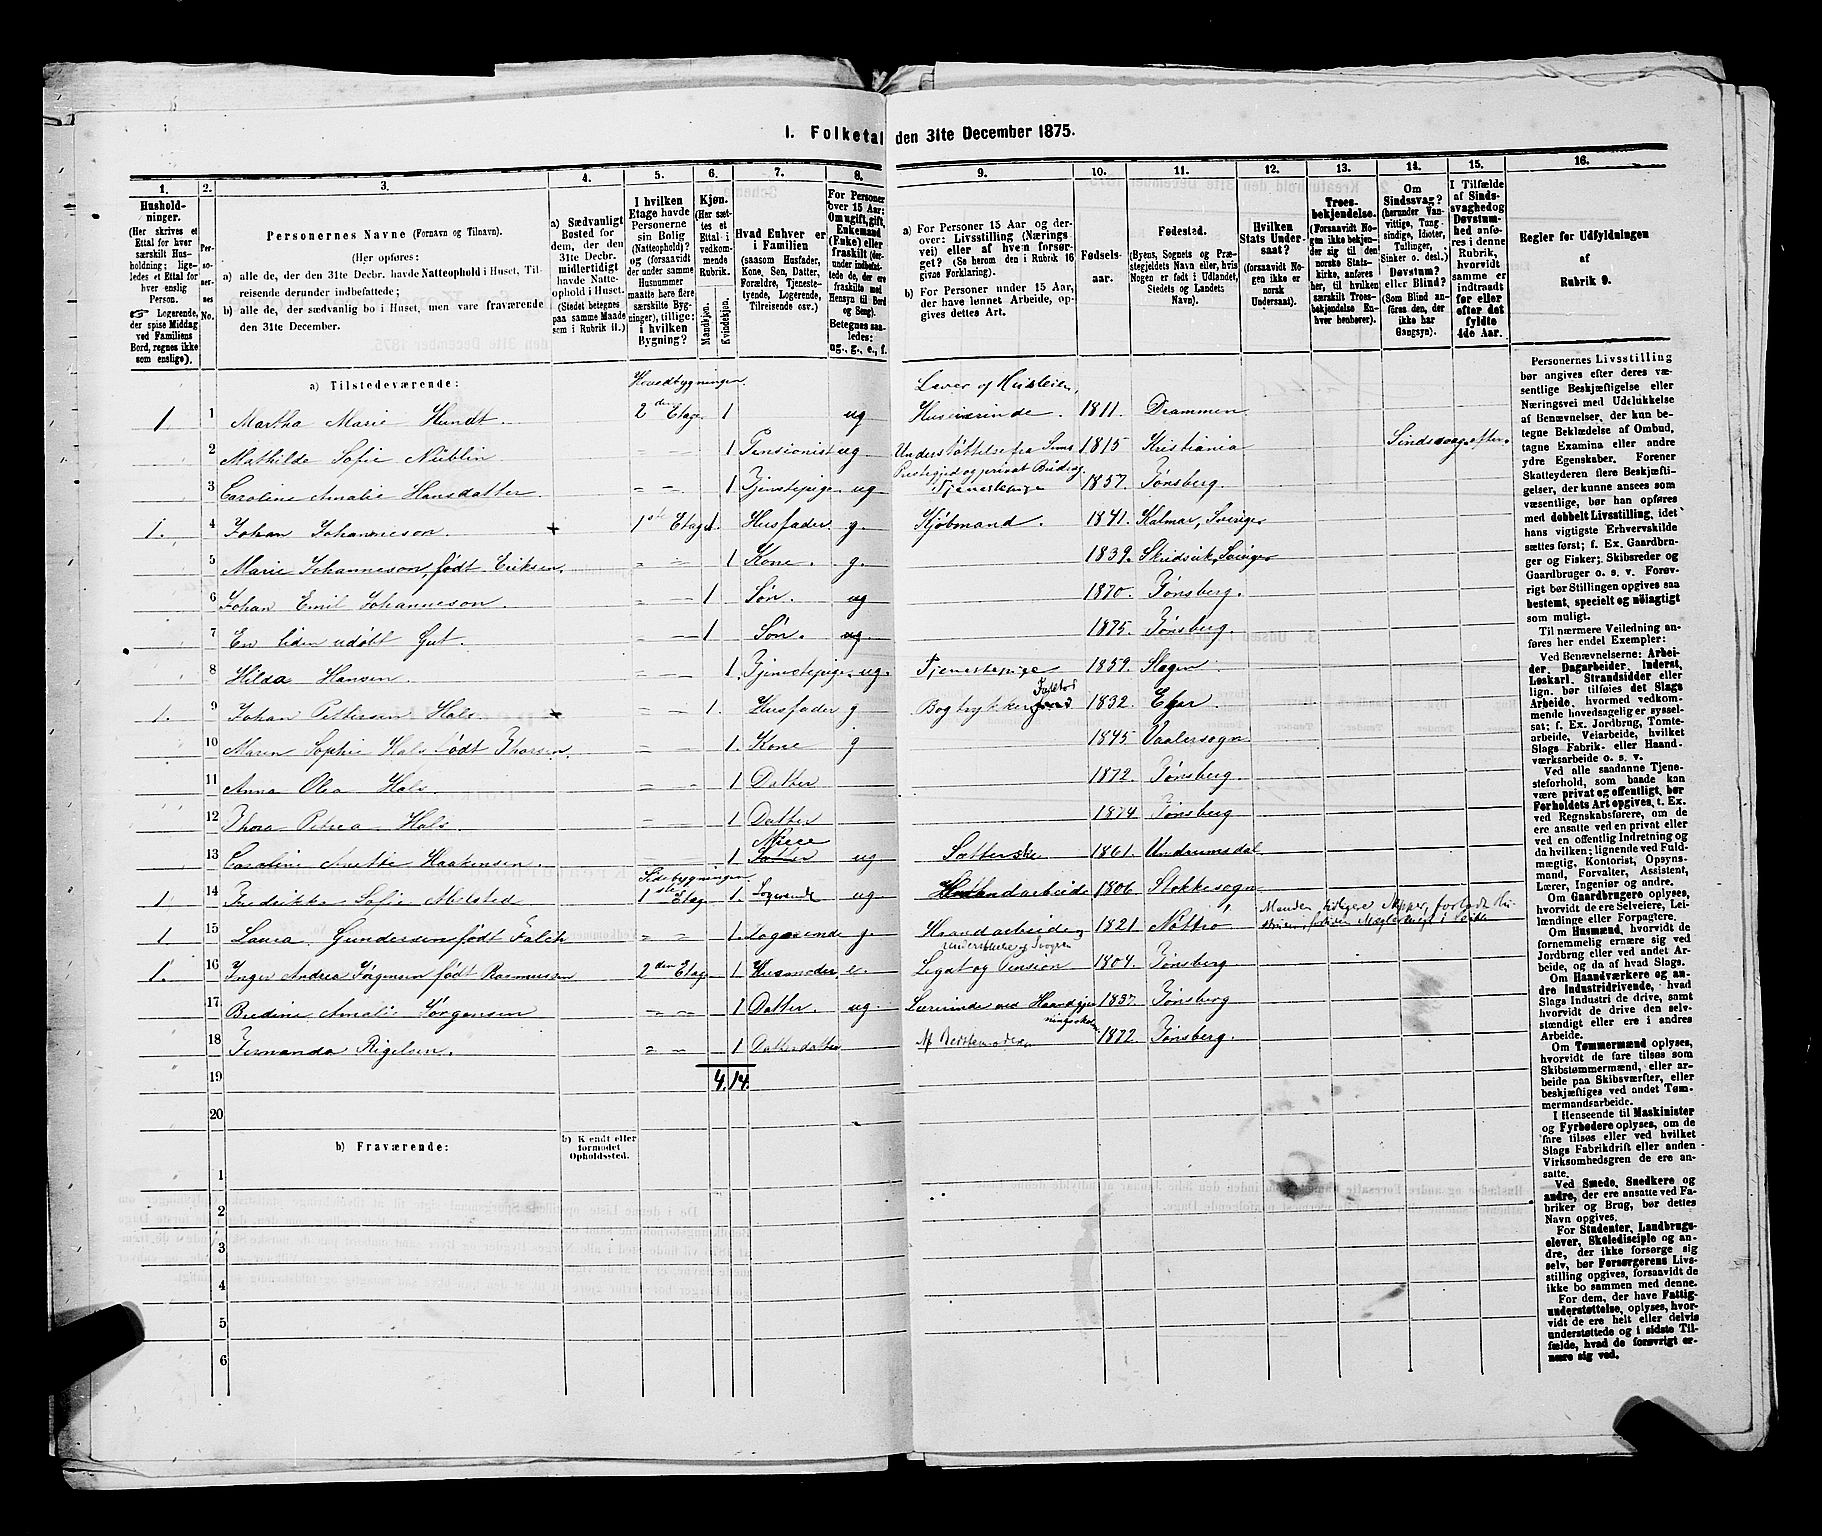 1. Folketal den 31te December 1875.
1. 2. 3. 4. 5. 6. 7. 8. 9. 10. 11. 12. 13. 14. 15. 16.
Hushold-
ninger.
(Her skrives et
Ettal for hver
særskilt Hus-
holdning; lige-
ledes et Ettal for
hver enslig
Person.
☞ Logerende,
der spise Middag
ved Familiens
Bord, regnes ikke
som enslige).
Per-
so-
ner-
nes
No.
Personernes Navne (Fornavn og Tilnavn).
(Her opføres:
a) alle de, der den 31te Decbr. havde Natteophold i Huset, Til-
reisende derunder indbefattede;
b) alle de, der sædvanlig bo i Huset, men vare fraværende
den 31te December.
a) Sædvanligt
Bosted for
dem, der den
31te Decbr.
midlertidigt
havde Natte-
ophold i Huset.
(Stedet betegnes
paa samme Maade
som i Rubrik 11.)
I hvilken
Etage havde
Personerne
sin Bolig
(Natteophold)?
og (forsaavidt
der under samme
Husnummer
maatte høre flere
særskilte Byg-
ninger), tillige:
i hvilken
Bygning?
Kjøn.
(Her sæt-
tes et
Ettal i
vedkom-
mende
Rubrik.
Mandkjøn.
Kvindekjøn.
Hvad Enhver er
i Familien
(saasom Husfader,
Kone, Søn, Datter,
Forældre, Tjeneste-
tyende, Logerende,
Tilreisende osv.)
For Personer
over 15 Aar:
Om ugift, gift,
Enkemand
(Enke) eller
fraskilt (der-
under indbefat-
tede de, der ere
fraskilte med
Hensyn til Bord
og Seng).
Betegnes saa-
ledes:
ug., g., e., f.
a) For Personer 15 Aar og der-
over: Livsstilling (Nærings-
vei) eller af hvem forsør-
get? (Se herom den i Rubrik 16
givne Forklaring).
b) For Personer under 15 Aar,
der have lønnet Arbeide, op-
gives dettes Art.
Fødsels-
aar.
Fødested.
(Byens, Sognets og Præ-
stegjeldets Navn eller, hvis
Nogen er født i Udlandet,
Stedets og Landets
Navn).
Hvilken
Stats Under-
saat?
(forsaavidt No-
gen ikke er
norsk
Undersaat).
Troes-
bekjendelse.
(Forsaavidt No-
gen ikke bekjen-
der sig til den
norske Stats-
kirke, anføres
her, til hvilken
særskilt Troes-
bekjendelse En-
hver henhører).
Om
Sindssvag?
(herunder Van-
vittige, Tung-
sindige, Idioter,
Tullinger,
Sinker o. desl.)
Døvstum?
eller Blind?
(Som Blind an-
føres den, der
ikke har
Gangsyn).
I Tilfælde
af Sinds-
svaghed og
Døvstum-
hed anfø-
res i denne
Rubrik,
hvorvidt
samme er
indtraadt
før eller
efter det
fyldte
4de Aar.
Regler for Udfyldningen
af
Rubrik 9.
a) Tilstedeværende: Hovedbygningen Lever af Husleien,
1 1 Martha Marie Hundt. 2den Etage 1 ug Huseierinde. 1811. Drammen
2 Mathilde Sofie Nüblin " " 1 Pensionist ug Understøttelse fra 1815 Kristiania Sindssvag efter.
og privat Bidrag.
3 Caroline Amalie Hansdatter " " 1 Tjenestepige ug Tjenestepige 1857. Tønsberg.
1. 4 Johan Johanneson. 1ste Etage 1 Husfader g. Kjøbmand. 1841. Kalmar, Sverige
5 Marie Johanneson, født Eriksen. " " 1 Kone. g. 1839. Sverige
6 Johan Emil Johanneson. " " 1 Søn. ug 1870. Tønsberg.
7 En liden udøbt Gut. " " 1 Søn. ug. 1875. Tønsberg.
8 Hilda Hansen. " " 1. Tjenestepige ug. Tjenestepige 1859. Slagen
1. 9 Johan Pettersen Hals " " 1. Husfader g Bogtrykker Faktor 1832 Eger
10 Maren Sophie Hals født Thorsen. " " 1. Kone g 1845. Vaalersogn
11 Anna Olea Hals. " " 1 Datter 1872. Tønsberg.
12 Thora Petrea Hals. " " 1. Datter 1874 Tønsberg
Niece
13 Caroline Anette Haakensen. " " 1 Datter ug 1861. Undrumsdal
Sidebygningen
1 14 Fredrikke Sofie Melsted 1ste Etage 1. Logerende ug Haandarbeide 1806 Stokkesogn
1 15 Laura Gundersen født Falch " " 1. Logerende g. Haandarbeide 1821. Nøttrø Manden tidligere Skipper,
Understøttelse af
1. 16 Inger Andrea Jørgensen født Rasmussen 2den Etage 1 Husmoder e. Legat og Pension 1804. Tønsberg
17 Bredine Amalie Jørgensen " " 1 Datter. ug. Lærerinde ved Haandgjer-
ningsskolen 1837. Tønsberg
18 Fernanda Rigelsen. " " 1 Datterdatter Af Bedstemoderen 1872. Tønsberg.
19 4. 14.
20
b) Fraværende: b) Kjendt eller
formodet
Opholdssted.
1
2
3
4
5
6
Personernes Livsstilling
bør angives efter deres væ-
sentlige Beskjæftigelse eller
Næringsvei med Udelukkelse
af Benævnelser, der kun be-
tegne Beklædelse af Ombud,
tagne Examina eller andre
ydre Egenskaber. Forener
Skatteyderen flere Beskjæfti-
gelser, der kunne ansees som
væsentlige, bør han opføres
med dobbelt Livsstilling, idet
hans vigtigste Erhvervskilde
sættes først; f. Ex. Gaardbru-
ger og Fisker; Skibsreder og
Gaardbruger o. s. v. Forøv-
rigt bør Stillingen opgives saa
bestemt, specielt og nøiagtigt
som muligt.
Til nærmere Veiledning an-
føres her endel Exempler:
Ved Benævnelserne: Arbei-
der, Dagarbeider, Inderst,
Løskarl, Strandsidder eller
lign. bør tilføies det Slags
Arbeide, hvormed vedkom-
mende hovedsagelig er syssel-
sat; f. Ex. Jordbrug, Tomte-
arbeide, Veiarbeide, hvilket
Slags Fabrik- eller Haand-
værksarbeide o. s. v.
Ved alle saadanne Tjene-
steforhold, som baade kan
være privat og offentligt, bør
Forholdets Art opgives, t. Ex.
ved Regnskabsførere, om de
ere ansatte ved en privat eller
ved en offentlig Indretning og
da hvilken; lignende ved Fuld-
mægtig, Kontorist, Opsyns-
mand, Forvalter, Assistent,
Lærer, Ingeniør og andre.
Om Gaardbrugere oplyses,
hvorvidt de ere Selveiere, Lei-
lændinge eller Forpagtere.
Om Husmænd, hvorvidt de
fornemmelig ernære sig ved
Jordbrug eller ved andet Ar-
beide, og da af hvad Slags.
Om Haandværkere og an-
dre Industridrivende, hvad
Slags Industri de drive, samt
hvorvidt de drive den selv-
stændigt eller ere i andres
Arbeide.
Om Tømmermænd oplyses,
hvorvidt de fare tilsøs som
Skibstømmermænd, eller ar-
beide paa Skibsværfter, eller
beskjæftiges ved andet Tøm-
mermandsarbeide.
I Henseende til Maskinister
og Fyrbødere oplyses, om de
fare tilsøs eller ved hvilket
Slags Fabrikdrift eller anden
Virksomhedsgren de ere an-
satte.
Ved Smede, Snedkere og
andre, der ere ansatte ved Fa-
briker og Brug, bør dettes
Navn opgives.
For Studenter, Landbrugs-
elever, Skoledisciple og an-
dre, der ikke forsørge sig
selv, bør Forsørgerens Livs-
stilling opgives, forsaavidt de
ikke bo sammen med denne.
For dem, der have Fattig-
understøttelse, oplyses, hvor-
vidt de ere helt eller delvis
understøttede og i sidste Til-
fælde, hvad de forøvrigt er-
nære sig ved.